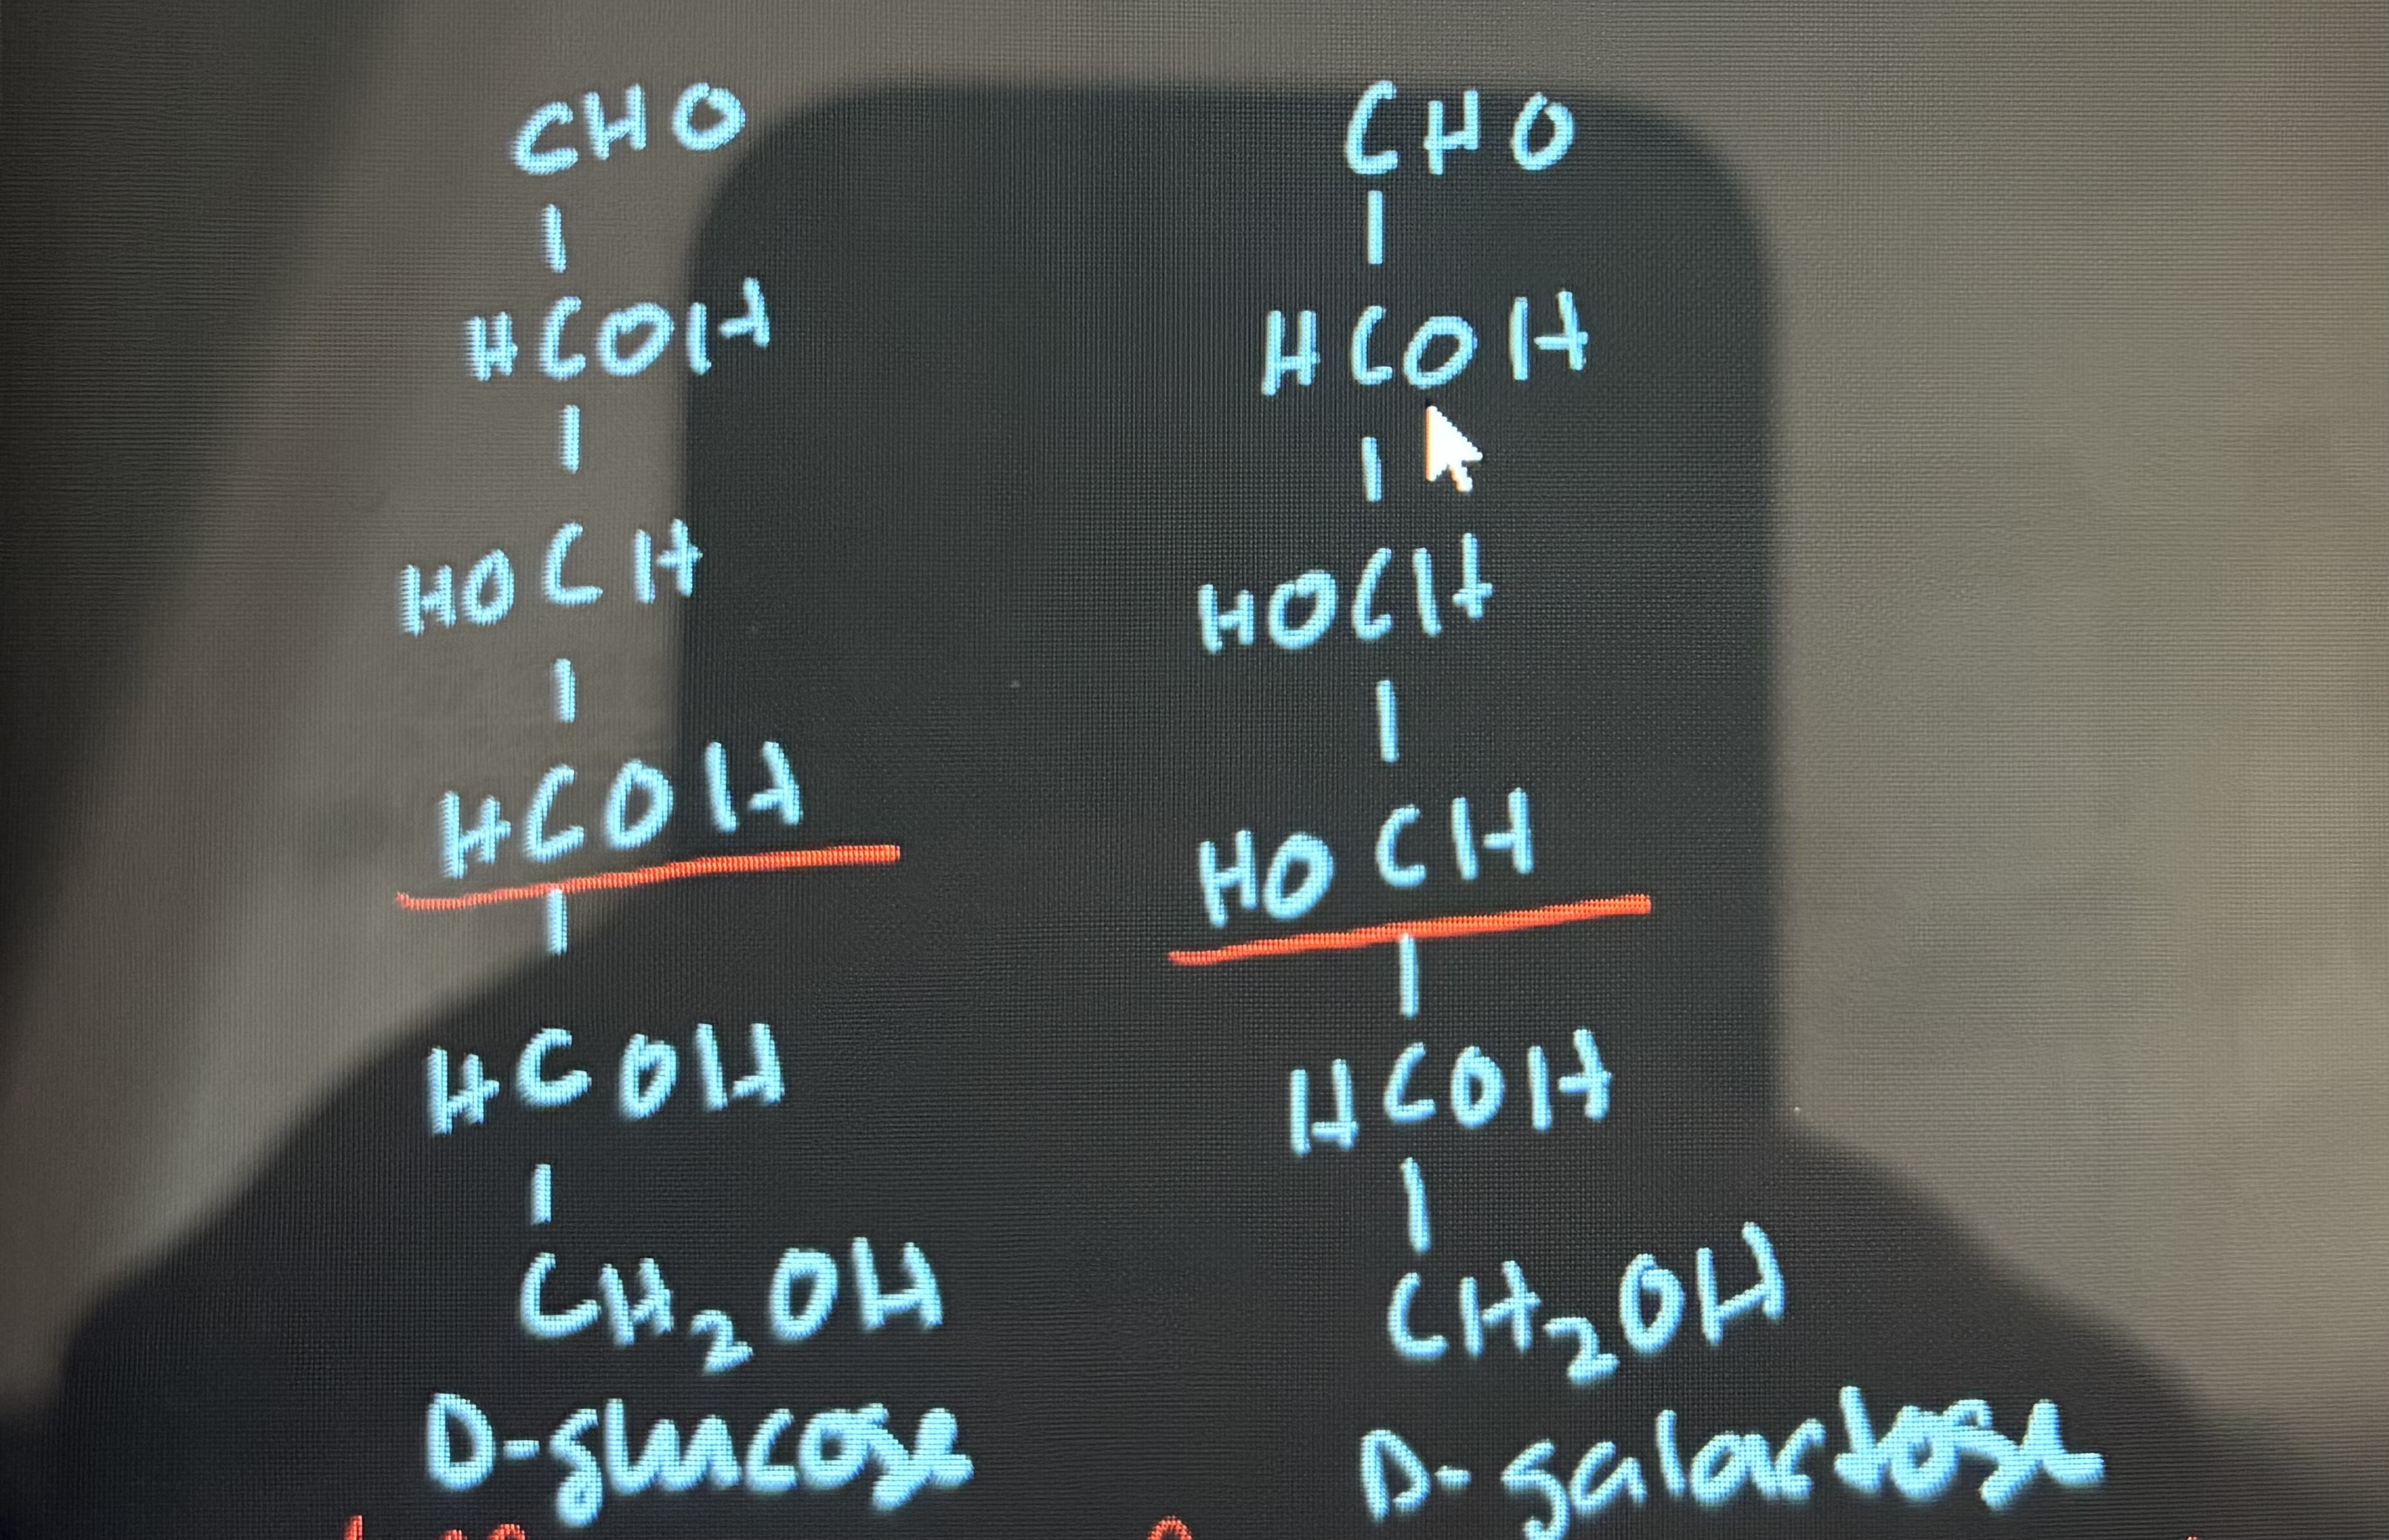 CHO
|
HCOH
|
HOCH
|
HCOH
|
HCOH
|
CH₂OH
D-glucose
CHO
|
HCOH
|
HOCH
|
HOCH
|
HCOH
|
CH₂OH
D-galactose